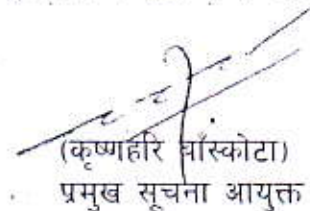 (कृष्णहरि बाँस्कोटा)
प्रमुख सूचना आयुक्त